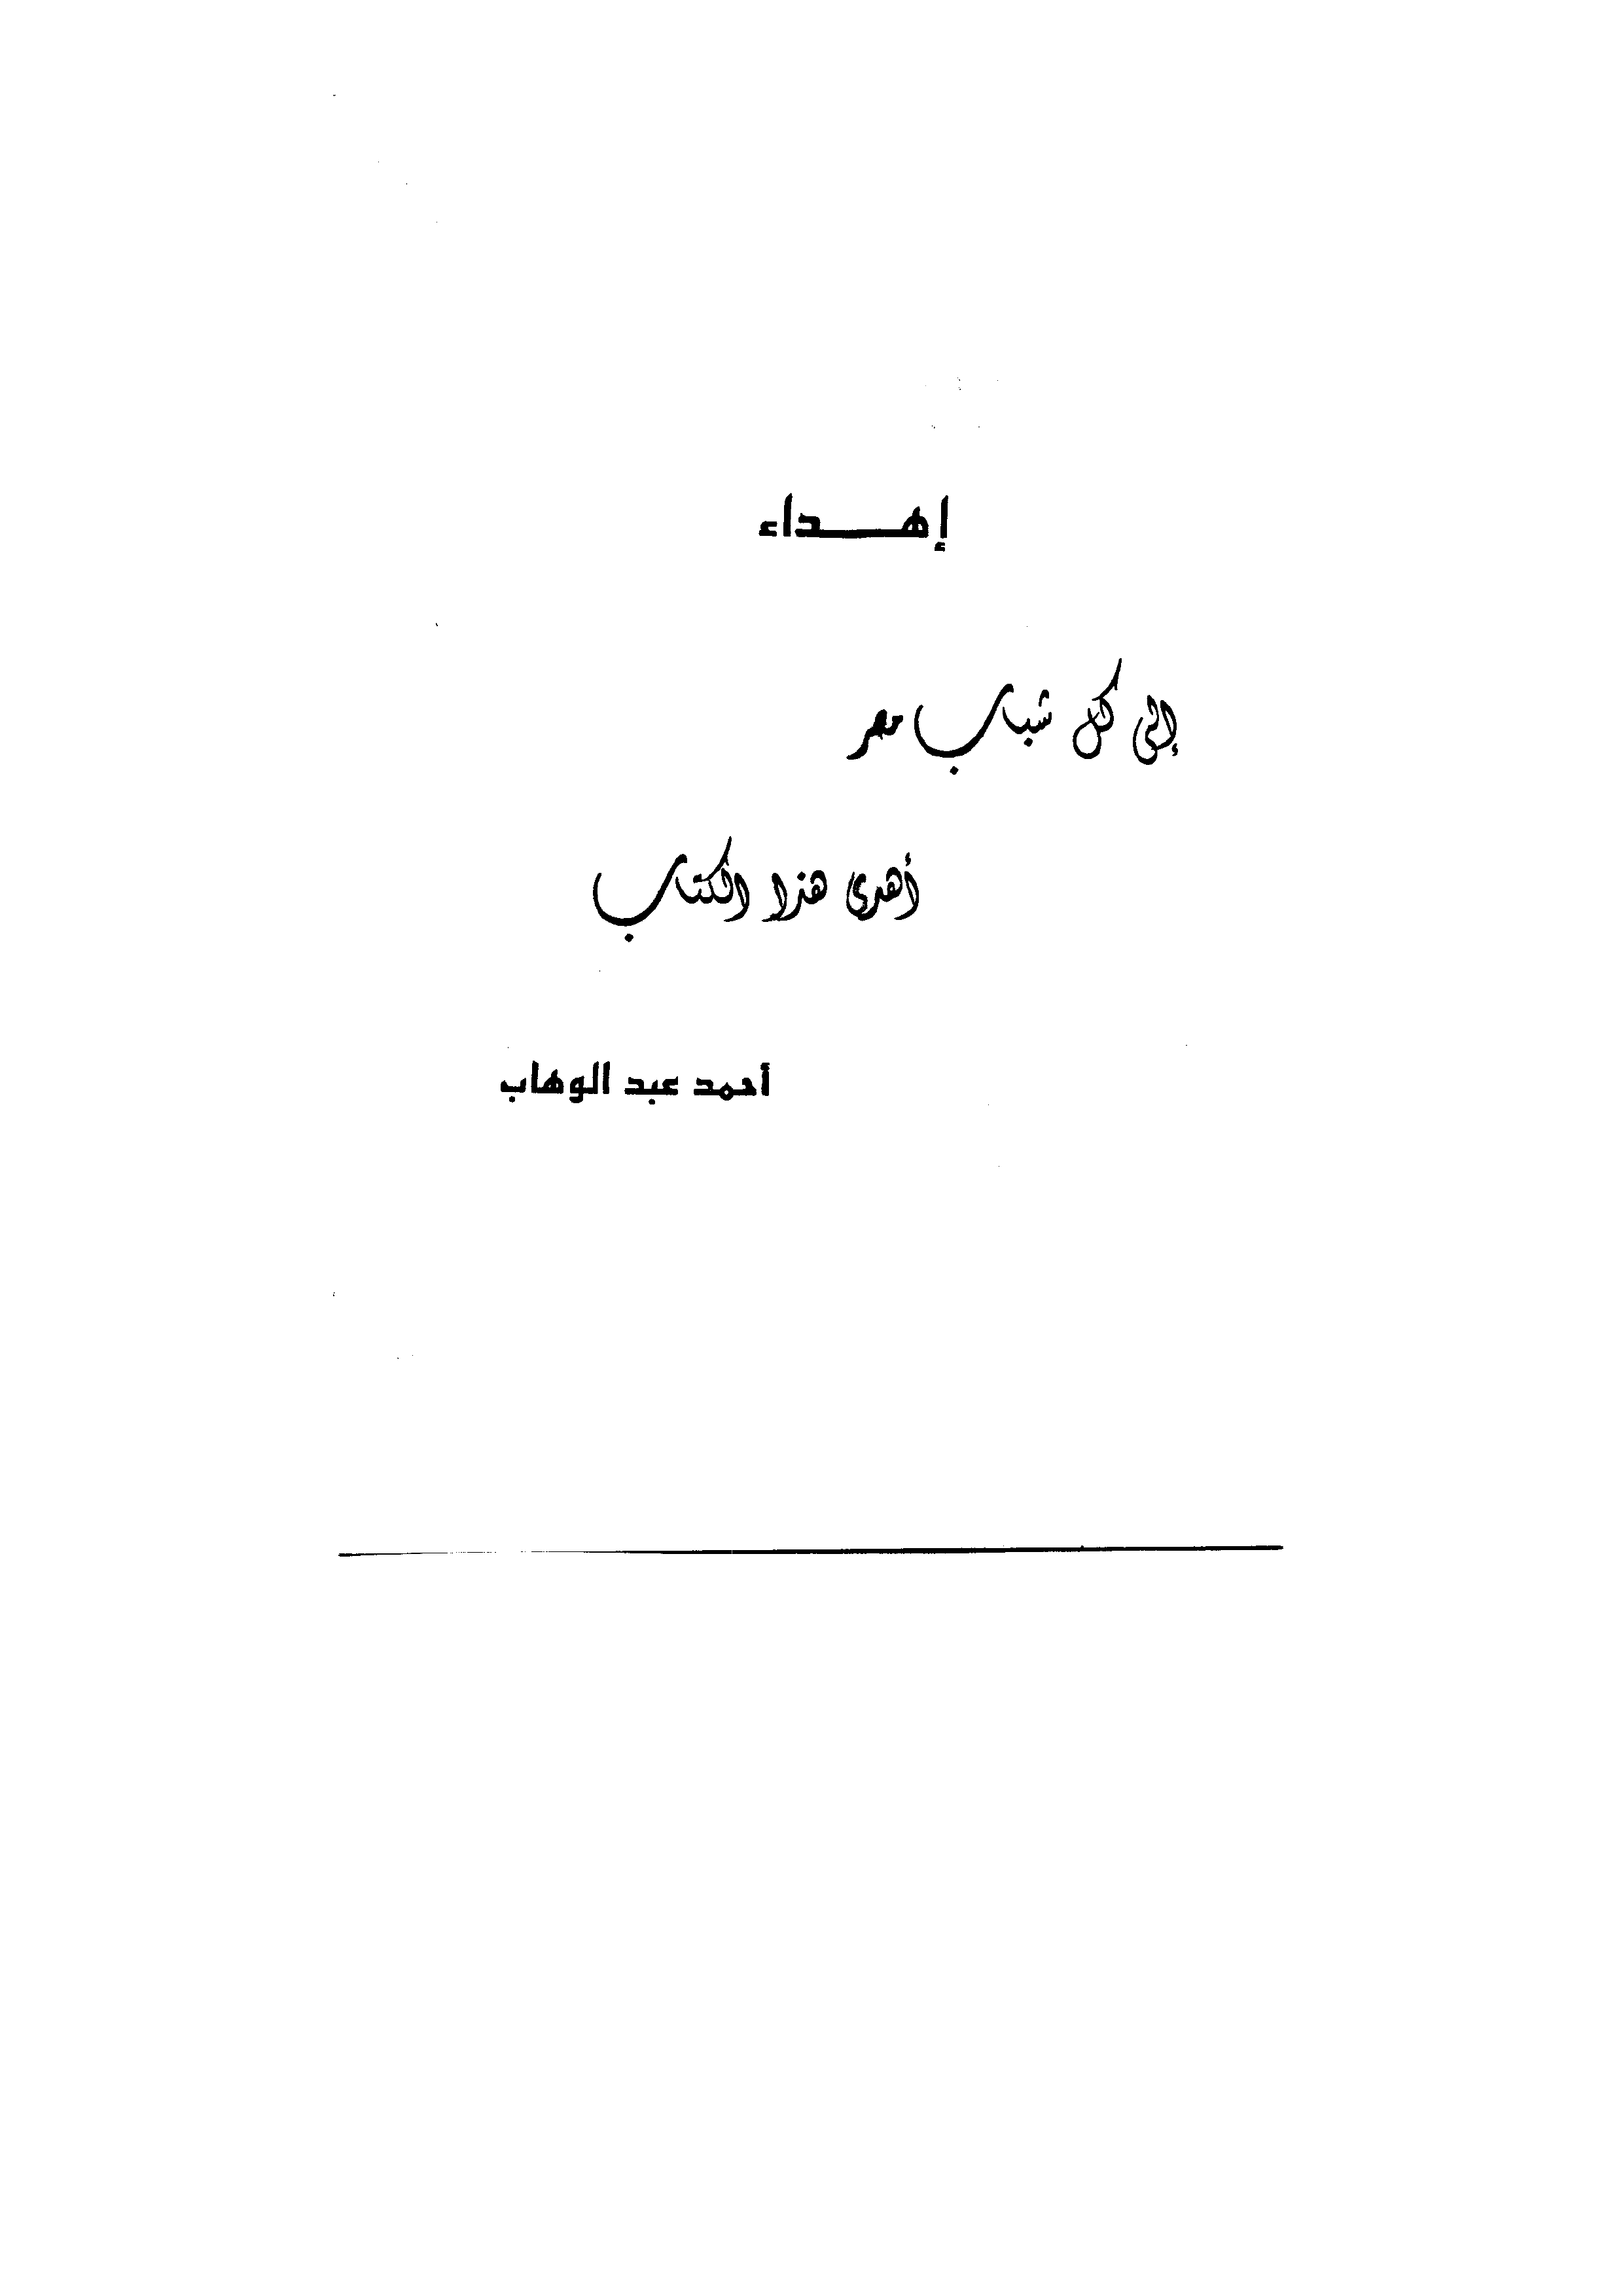 إهـــداء
إلى كل شباب مصر
أهدى هذا الكتاب
أحمد عبد الوهاب